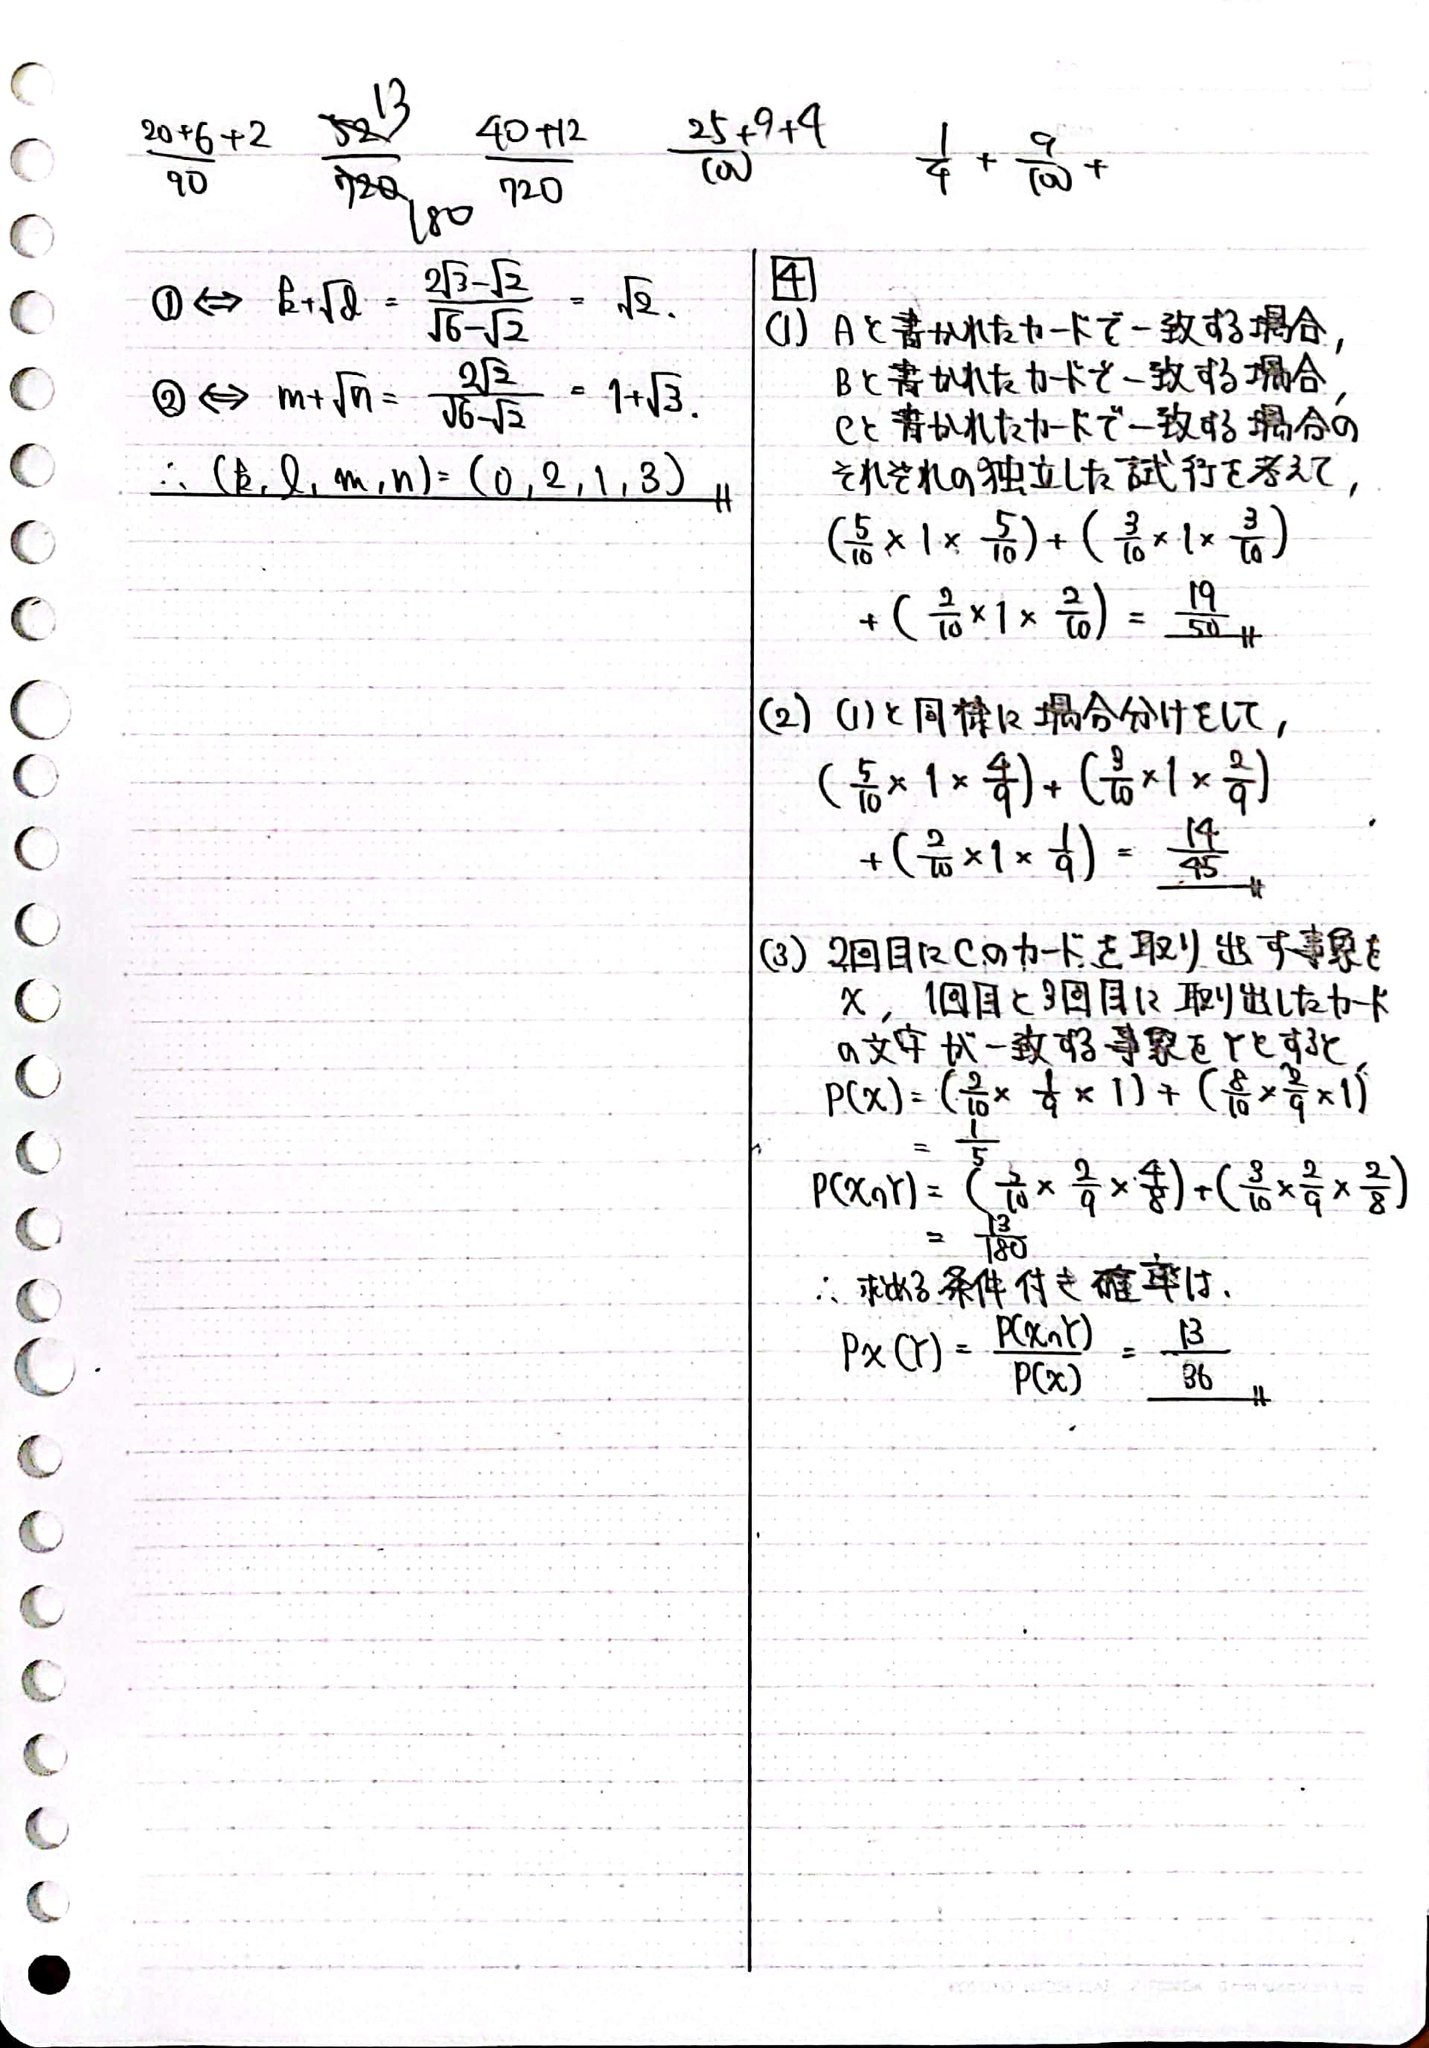 (20+6+2)/90 52/720 13/180 (40+12)/720 (25+9+4)/100 1/4 + 9/100 +
① ⇔ k+√l = (2√3-√2)/(√6-√2) = √2.
② ⇔ m+√n = 2√2/(√6-√2) = 1+√3.
∴ (k, l, m, n) = (0, 2, 1, 3)
4
(1) Aと書かれたカードで一致する場合,
Bと書かれたカードで一致する場合,
Cと書かれたカードで一致する場合の
それぞれの独立した試行を考えて,
(5/10 × 1 × 5/10) + (3/10 × 1 × 3/10)
+ (2/10 × 1 × 2/10) = 19/50
(2) (1)と同様に場合分けをして,
(5/10 × 1 × 4/9) + (3/10 × 1 × 2/9)
+ (2/10 × 1 × 1/9) = 14/45
(3) 2回目にCのカードを取り出す事象を
X, 1回目と3回目に取り出したカード
の文字が一致する事象をYとすると,
P(X) = (2/10 × 1/9 × 1) + (8/10 × 2/9 × 1)
= 1/5
P(X∩Y) = (5/10 × 2/9 × 4/8) + (3/10 × 2/9 × 2/8)
= 13/180
∴ 求める条件付き確率は,
Px(Y) = P(X∩Y)/P(X) = 13/36